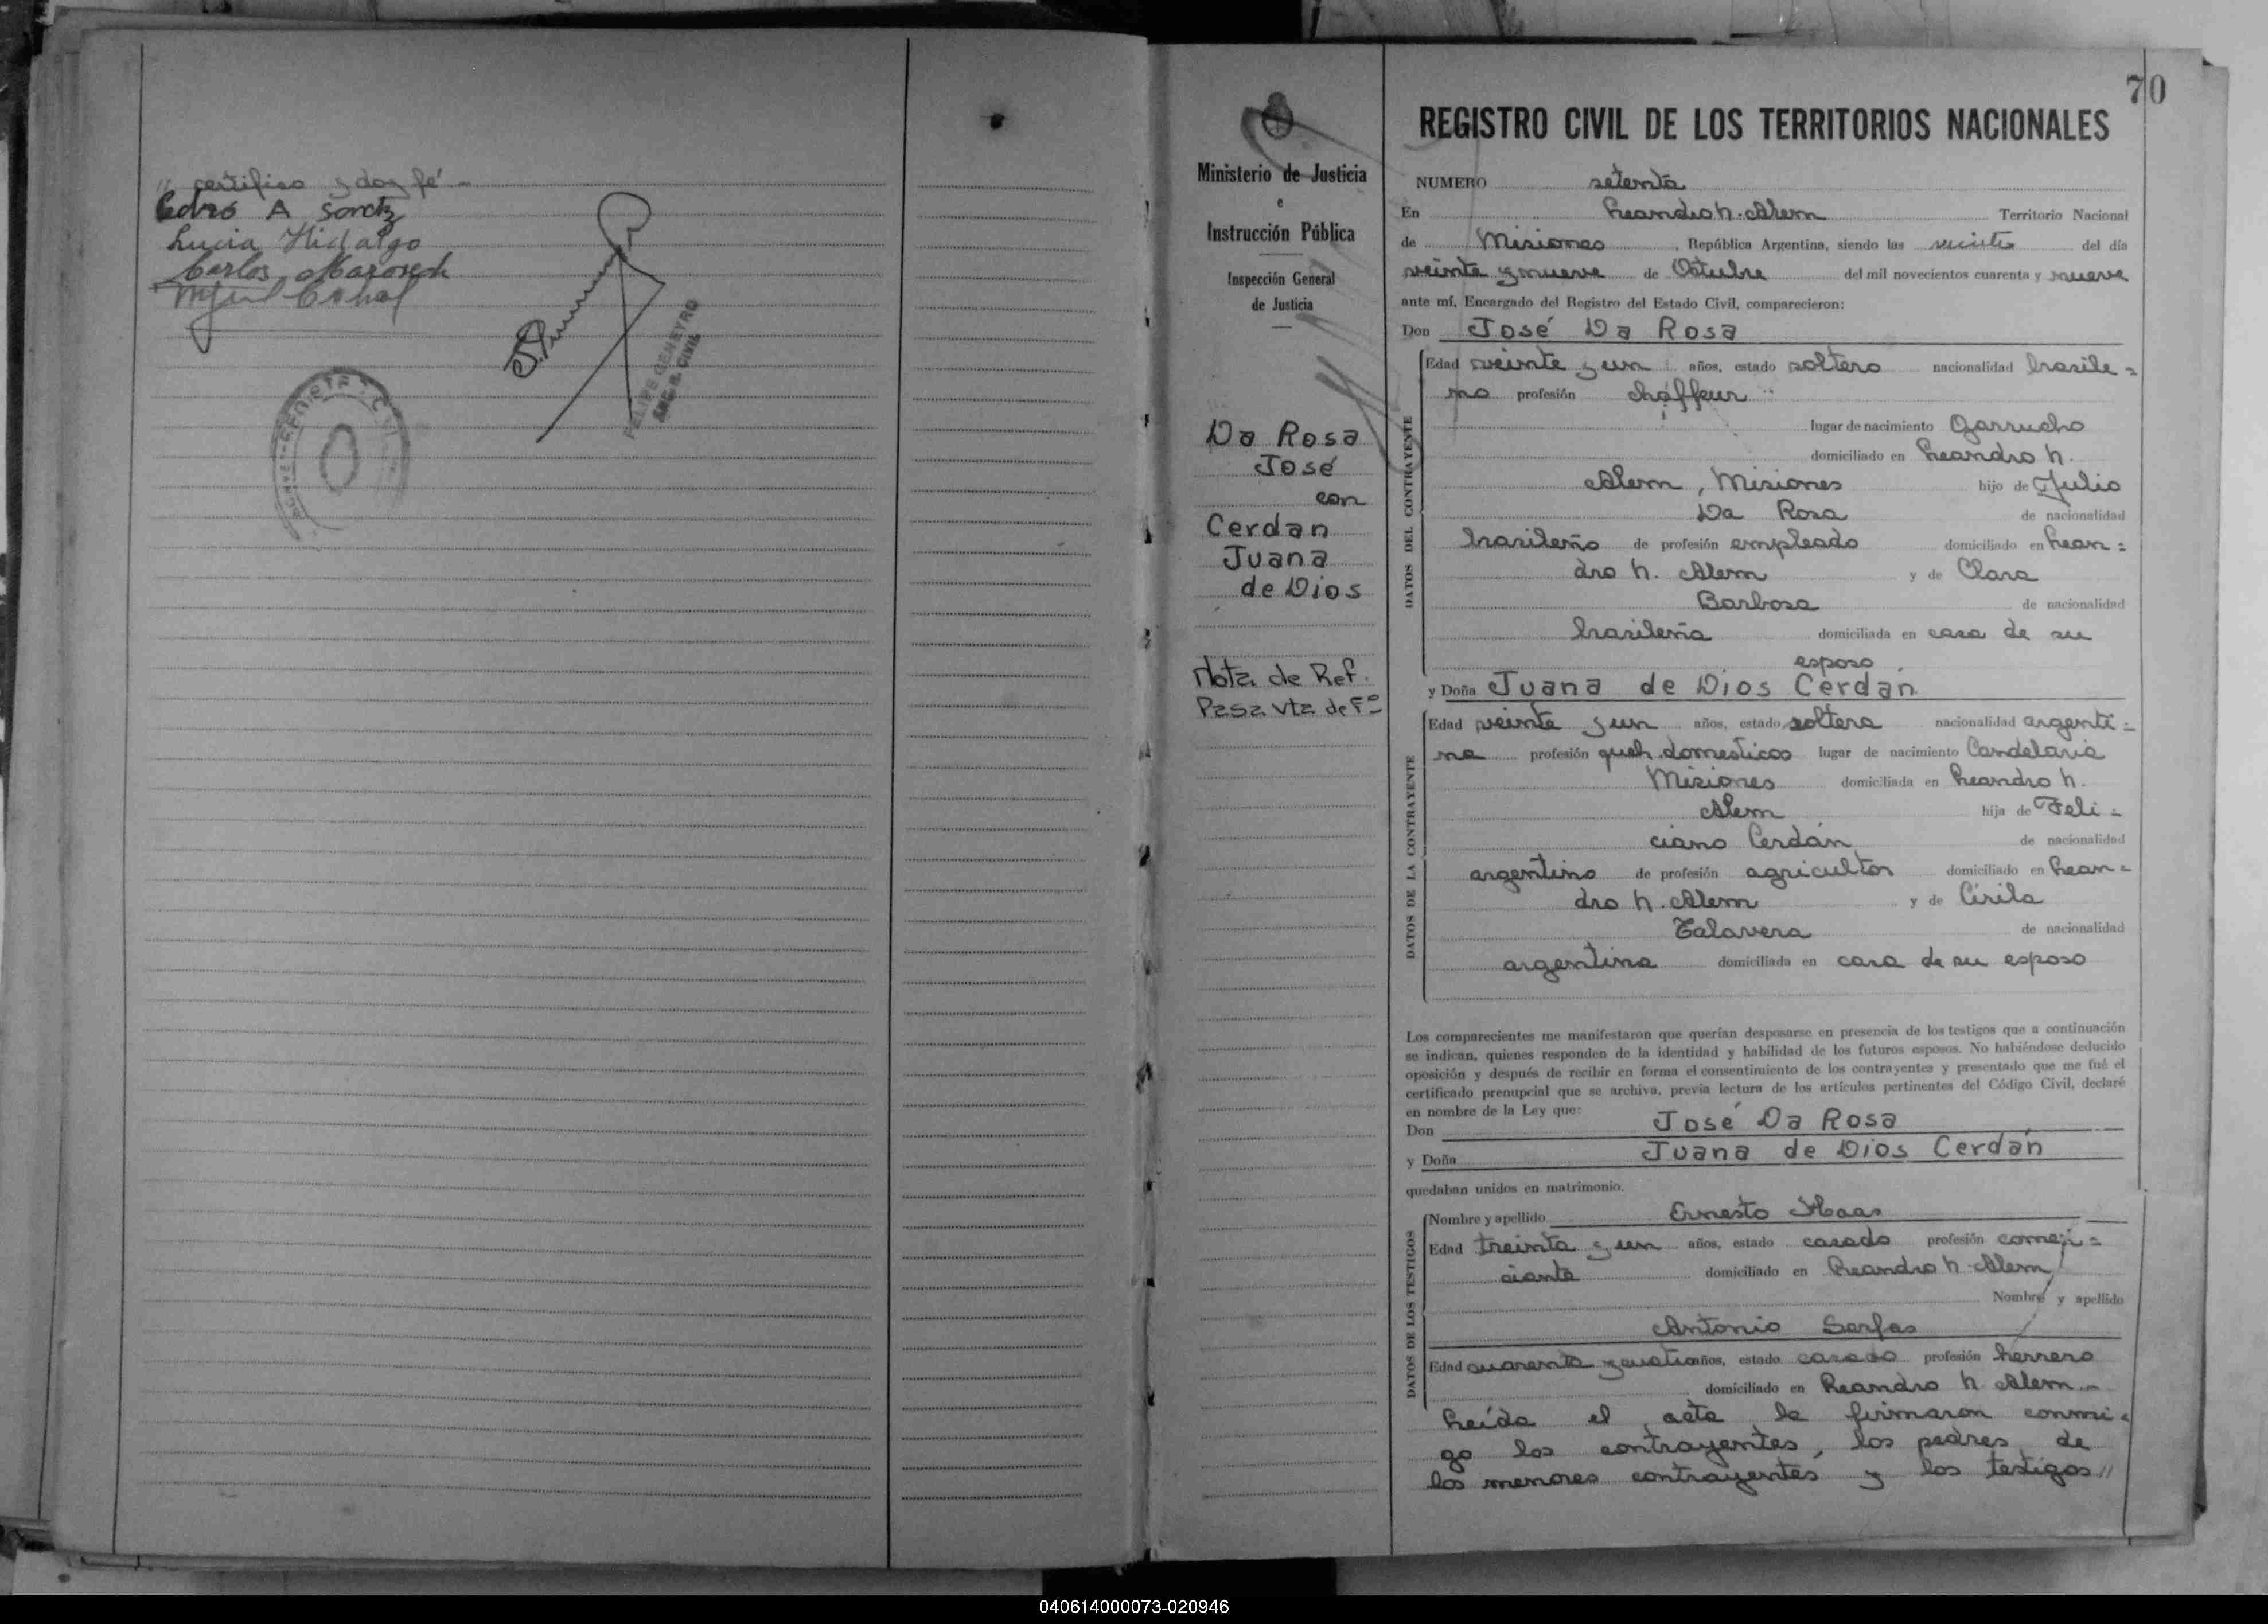 " certifico y doy fé -
Pedro A
Lucia Hidalgo
Carlos
Miguel
FELIPE GENEYRO
ENC. R. CIVIL
70
REGISTRO CIVIL DE LOS TERRITORIOS NACIONALES
Ministerio de Justicia
e
Instrucción Pública
Inspección General
de Justicia
Da Rosa
José
con
Cerdan
Juana
de Dios
Nota de Ref.
Pasa vta de Fº
NUMERO setenta
En Leandro N. Alem Territorio Nacional
de Misiones, República Argentina, siendo las veinte del día
veinte y nueve de Octubre del mil novecientos cuarenta y nueve
ante mí, Encargado del Registro del Estado Civil, comparecieron:
Don José Da Rosa
DATOS DEL CONTRAYENTE
Edad veinte y un años, estado soltero nacionalidad brasile=
no profesión chóffeur
lugar de nacimiento Garrucho
domiciliado en Leandro N.
Alem, Misiones hijo de Julio
Da Rosa de nacionalidad
brasileño de profesión empleado domiciliado en Lean=
dro N. Alem y de Clara
Barbosa de nacionalidad
brasileña domiciliada en casa de su
esposo
y Doña Juana de Dios Cerdán
DATOS DE LA CONTRAYENTE
Edad veinte y un años, estado soltera nacionalidad argenti=
na profesión queh. domesticos lugar de nacimiento Candelaria
Misiones domiciliada en Leandro N.
Alem hija de Feli=
ciano Cerdán de nacionalidad
argentino de profesión agricultor domiciliado en Lean=
dro N. Alem y de Cirila
Talavera de nacionalidad
argentina domiciliada en casa de su esposo
Los comparecientes me manifestaron que querían desposarse en presencia de los testigos que a continuación
se indican, quienes responden de la identidad y habilidad de los futuros esposos. No habiéndose deducido
oposición y después de recibir en forma el consentimiento de los contrayentes y presentado que me fué el
certificado prenupcial que se archiva, previa lectura de los artículos pertinentes del Código Civil, declaré
en nombre de la Ley que:
Don José Da Rosa
y Doña Juana de Dios Cerdán
quedaban unidos en matrimonio.
DATOS DE LOS TESTIGOS
Nombre y apellido Ernesto Haas
Edad treinta y un años, estado casado profesión comer=
ciante domiciliado en Leandro N Alem
Nombre y apellido
Antonio Serfas
Edad cuarenta y cuatro años, estado casado profesión herrero
domiciliado en Leandro N Alem.-
Leída el acta la firmaron conmi=
go los contrayentes, los padres de
los menores contrayentes y los testigos //
040614000073-020946